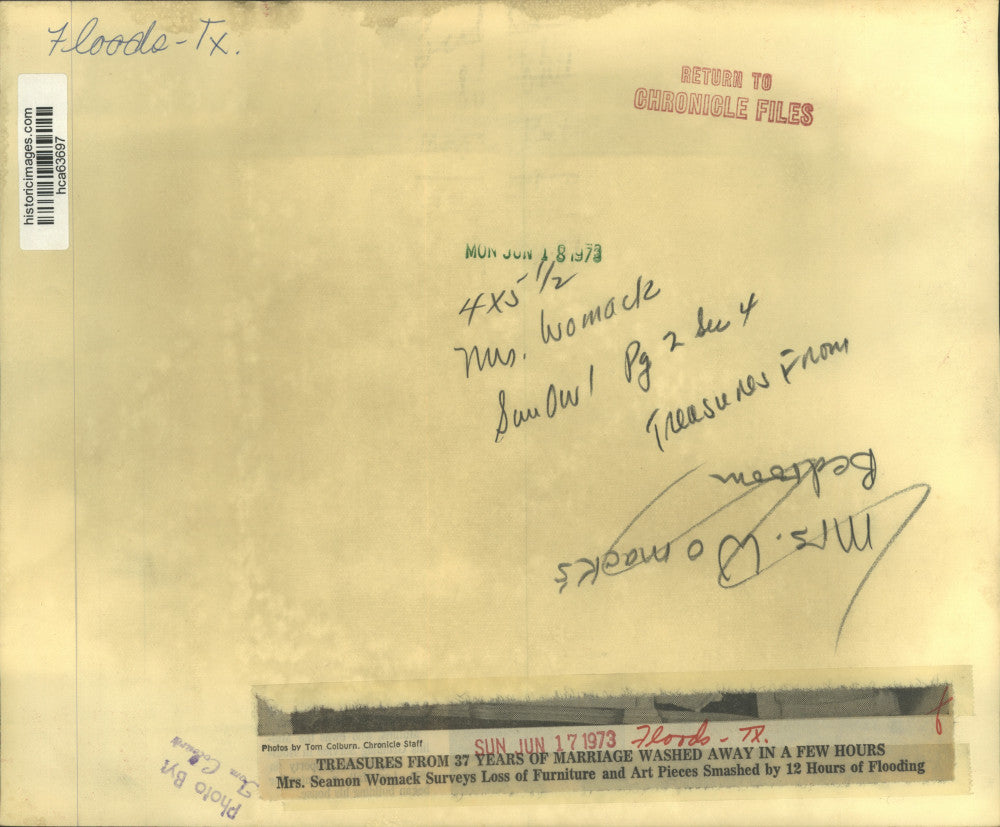 Floods - Tx.
RETURN TO
CHRONICLE FILES
historicimages.com
hca63697
MON JUN 18 1973
4x5 1/2
Mrs. Womack
Sun Own Pg 2 Sec 4
Treasures From
Mrs. Womack's
Bedroom
Photos by Tom Colburn, Chronicle Staff
SUN JUN 17 1973 Floods - TX.
TREASURES FROM 37 YEARS OF MARRIAGE WASHED AWAY IN A FEW HOURS
Mrs. Seamon Womack Surveys Loss of Furniture and Art Pieces Smashed by 12 Hours of Flooding
Photo By:
Tom Colburn